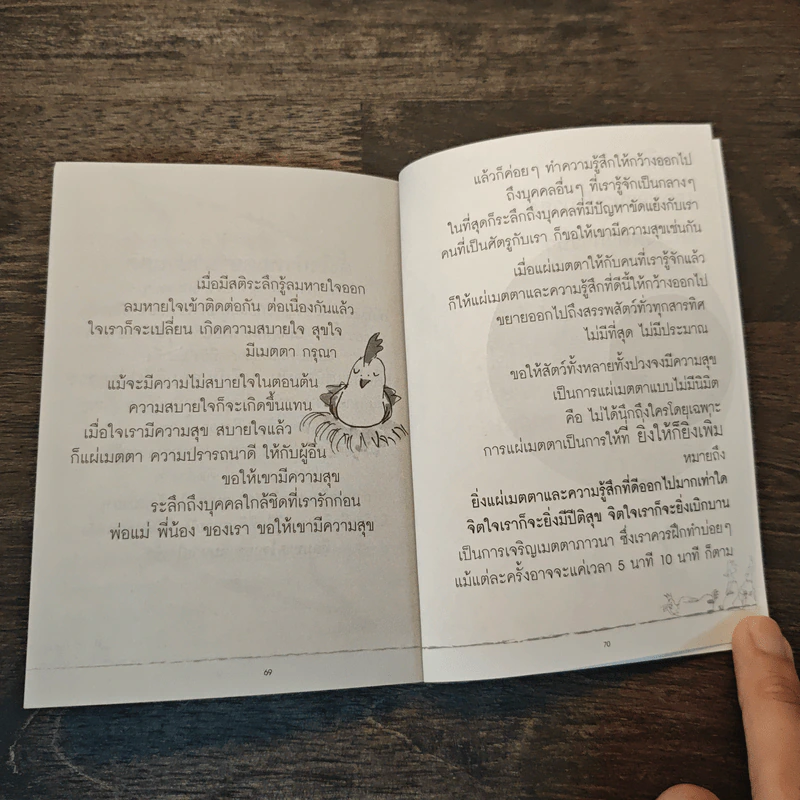 เมื่อมีสติระลึกรู้ลมหายใจออก
ลมหายใจเข้าติดต่อกัน ต่อเนื่องกันแล้ว
ใจเราก็จะเปลี่ยน เกิดความสบายใจ สุขใจ
มีเมตตา กรุณา
แม้จะมีความไม่สบายใจในตอนต้น
ความสบายใจก็จะเกิดขึ้นแทน
เมื่อใจเรามีความสุข สบายใจแล้ว
ก็แผ่เมตตา ความปรารถนาดี ให้กับผู้อื่น
ขอให้เขามีความสุข
ระลึกถึงบุคคลใกล้ชิดที่เรารักก่อน
พ่อแม่ พี่น้อง ของเรา ขอให้เขามีความสุข
69
แล้วก็ค่อยๆ ทำความรู้สึกให้กว้างออกไป
ถึงบุคคลอื่นๆ ที่เรารู้จักเป็นกลางๆ
ในที่สุดก็ระลึกถึงบุคคลที่มีปัญหาขัดแย้งกับเรา
คนที่เป็นศัตรูกับเรา ก็ขอให้เขามีความสุขเช่นกัน
เมื่อแผ่เมตตาให้กับคนที่เรารู้จักแล้ว
ก็ให้แผ่เมตตาและความรู้สึกที่ดีนี้ให้กว้างออกไป
ขยายออกไปถึงสรรพสัตว์ทั่วทุกสารทิศ
ไม่มีที่สุด ไม่มีประมาณ
ขอให้สัตว์ทั้งหลายทั้งปวงจงมีความสุข
เป็นการแผ่เมตตาแบบไม่มีนิมิต
คือ ไม่ได้นึกถึงใครโดยเฉพาะ
การแผ่เมตตาเป็นการให้ที่ ยิ่งให้ก็ยิ่งเพิ่ม
หมายถึง
ยิ่งแผ่เมตตาและความรู้สึกที่ดีออกไปมากเท่าใด
จิตใจเราก็จะยิ่งมีปีติสุข จิตใจเราก็จะยิ่งเบิกบาน
เป็นการเจริญเมตตาภาวนา ซึ่งเราควรฝึกทำบ่อยๆ
แม้แต่ละครั้งอาจจะแค่เวลา 5 นาที 10 นาที ก็ตาม
70